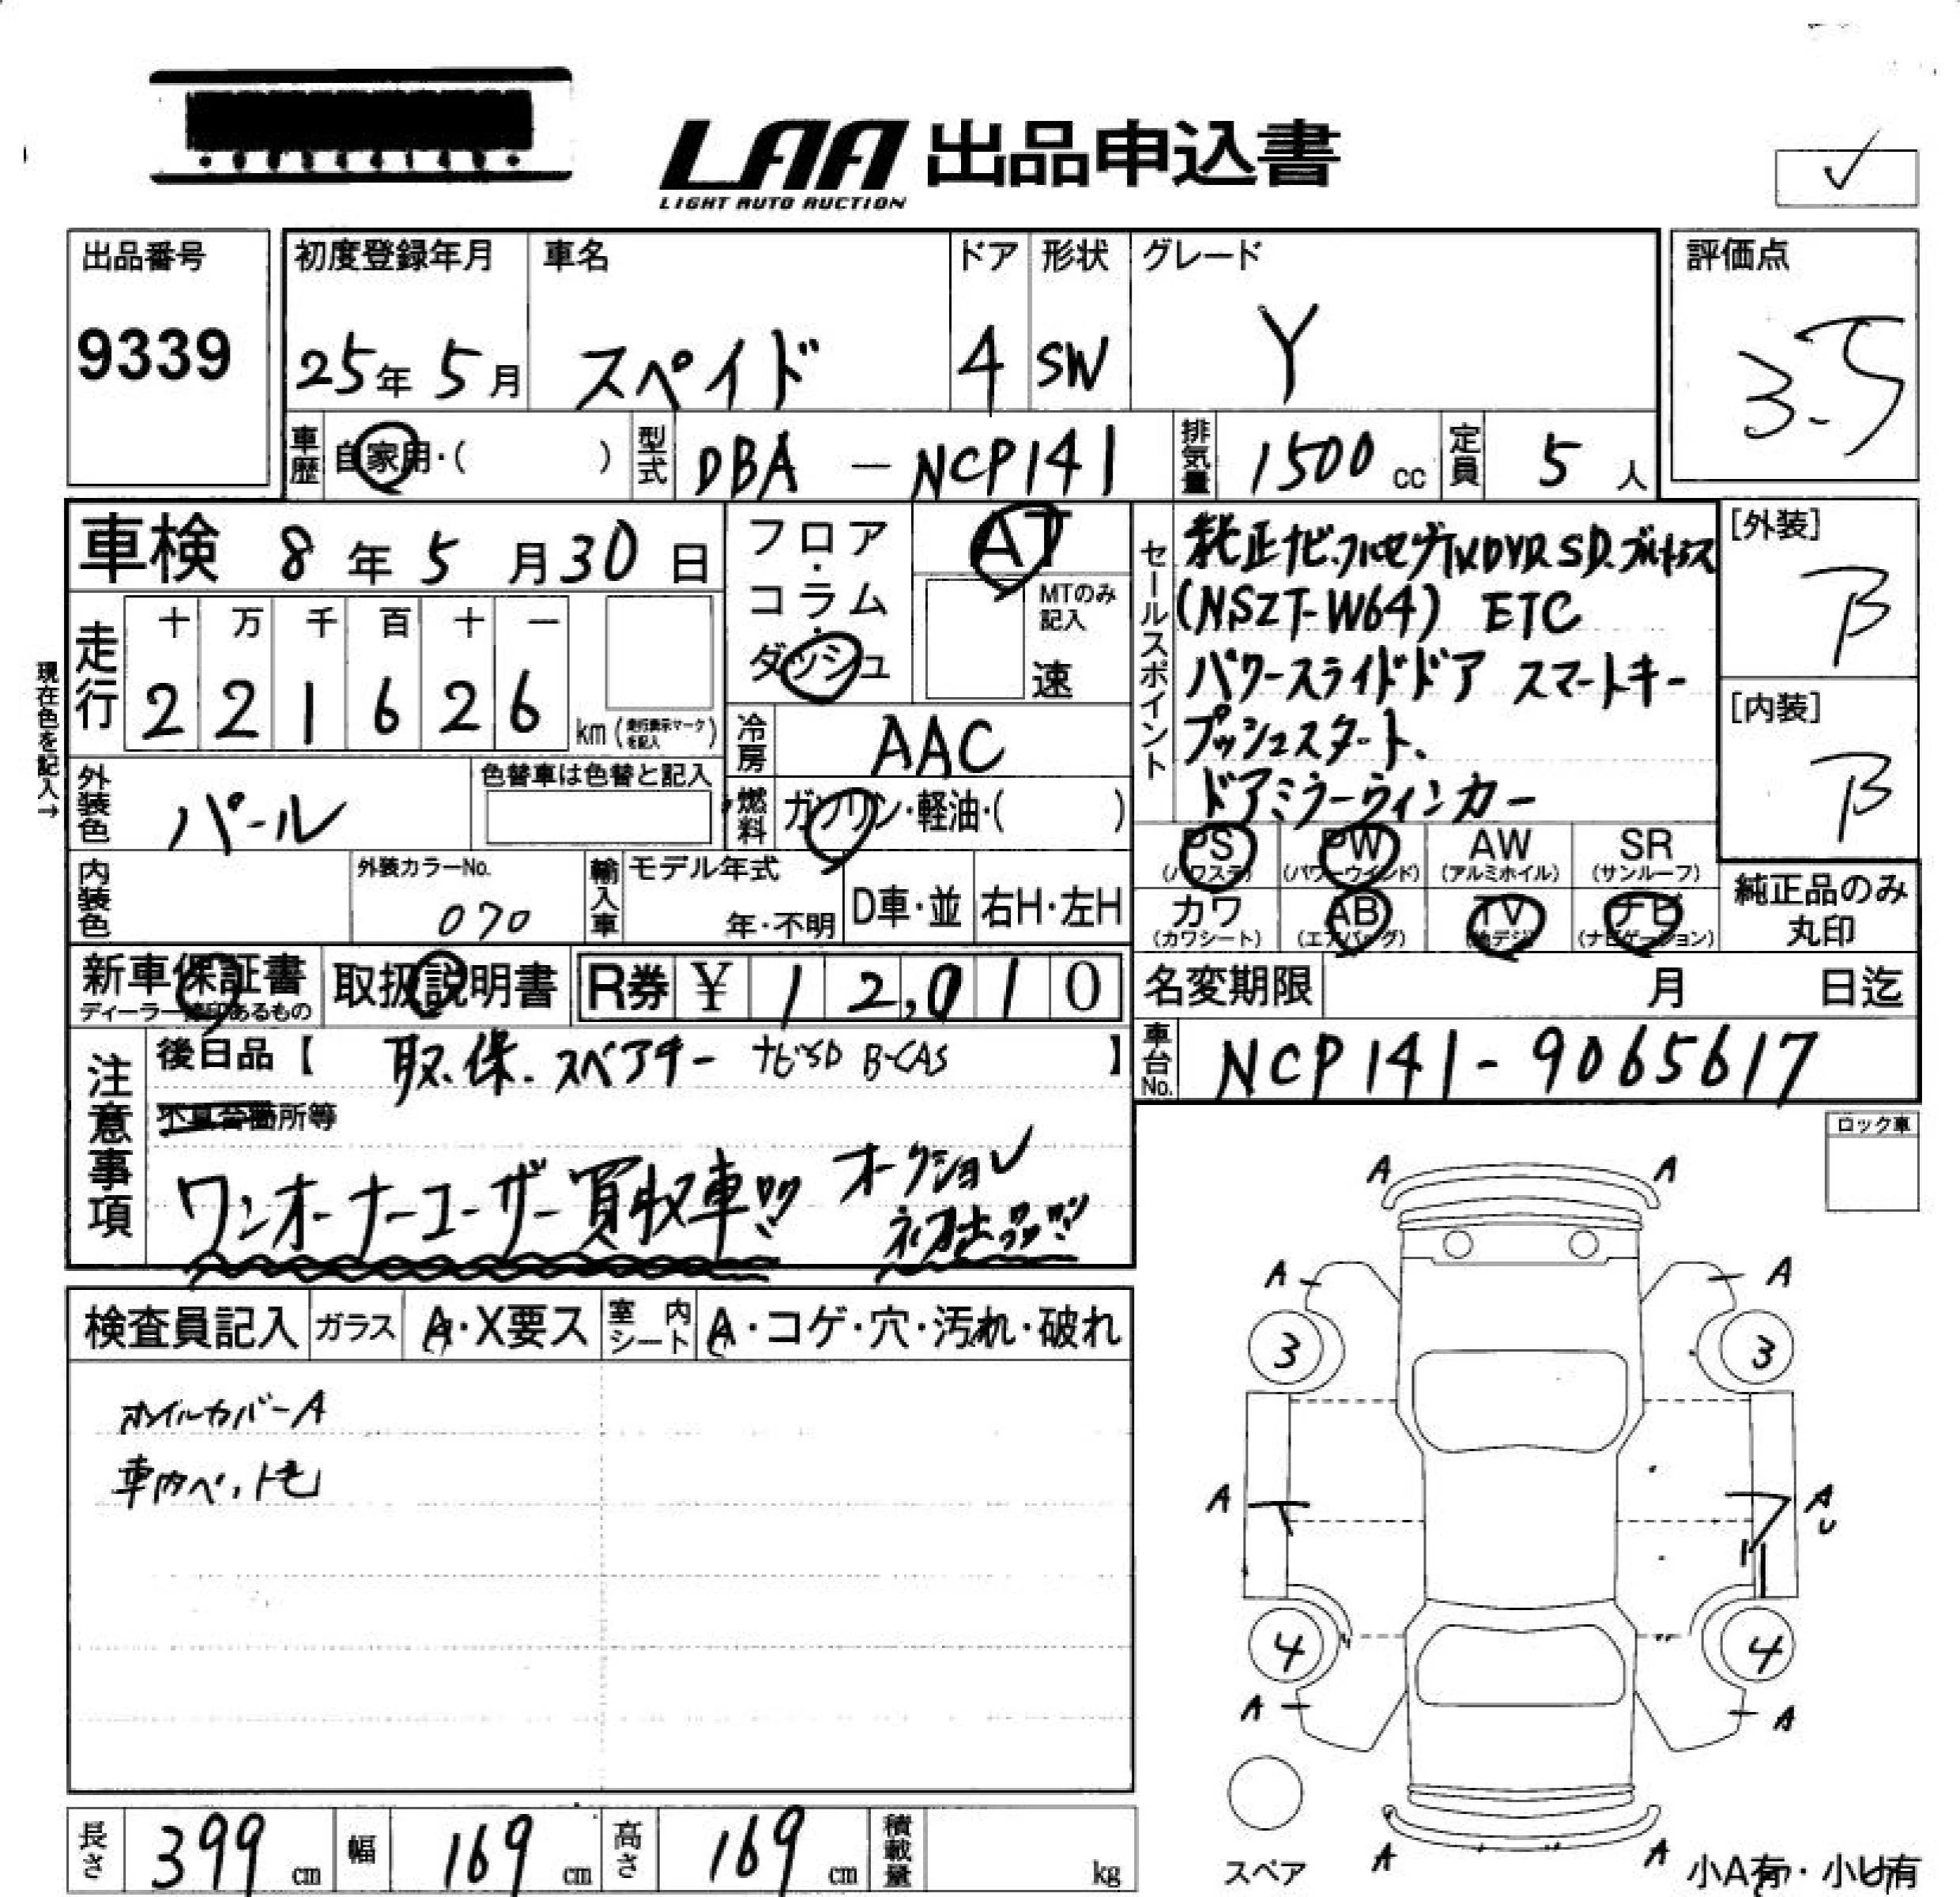 LAA 出品申込書
LIGHT AUTO AUCTION
出品番号
9339
初度登録年月
25年 5月
車名
スペイド
ドア
4
形状
SW
グレード
Y
評価点
3.5
車歴 自家用・( )
型式 DBA - NCP141
排気量 1500 cc
定員 5 人
車検 8年 5月30日
フロア・コラム・ダッシュ
AT
MTのみ記入
速
走行
十 万 千 百 十 一
2 2 1 6 2 6
km(走行表示マークを記入)
現在色を記入→
冷房 AAC
外装色 パール
色替車は色替と記入
燃料 ガソリン・軽油・( )
内装色
外装カラーNo.
070
輸入車 モデル年式
年・不明
D車・並 右H・左H
セールスポイント
純正ナビ.フルセグTV.DVD.SD.ブルートゥース
(NSZT-W64) ETC
パワースライドドア スマートキー
プッシュスタート、
ドアミラーウィンカー
[外装]
B
[内装]
B
PS (パワステ) PW (パワーウインド) AW (アルミホイル) SR (サンルーフ)
カワ (カワシート) AB (エアバッグ) TV (地デジ) ナビ (ナビゲーション)
純正品のみ丸印
新車保証書
ディーラー捺印あるもの
取扱説明書
R券 ¥ 12,010
名変期限 月 日迄
車台No. NCP141-9065617
注意事項
後日品【 取.保.スペアキー ナビSD B-CAS 】
不具合箇所等
ワンオーナーユーザー買取車!! オークション
初出品!!!
ロック車
検査員記入 ガラス A・X要ス 室内シート A・コゲ・穴・汚れ・破れ
ホイルカバーA
車内ペット毛
A A
A A
3 3
A A
U
4 4
A A
A A
スペア
小A有・小U有
長さ 399 cm 幅 169 cm 高さ 169 cm 積載量 kg